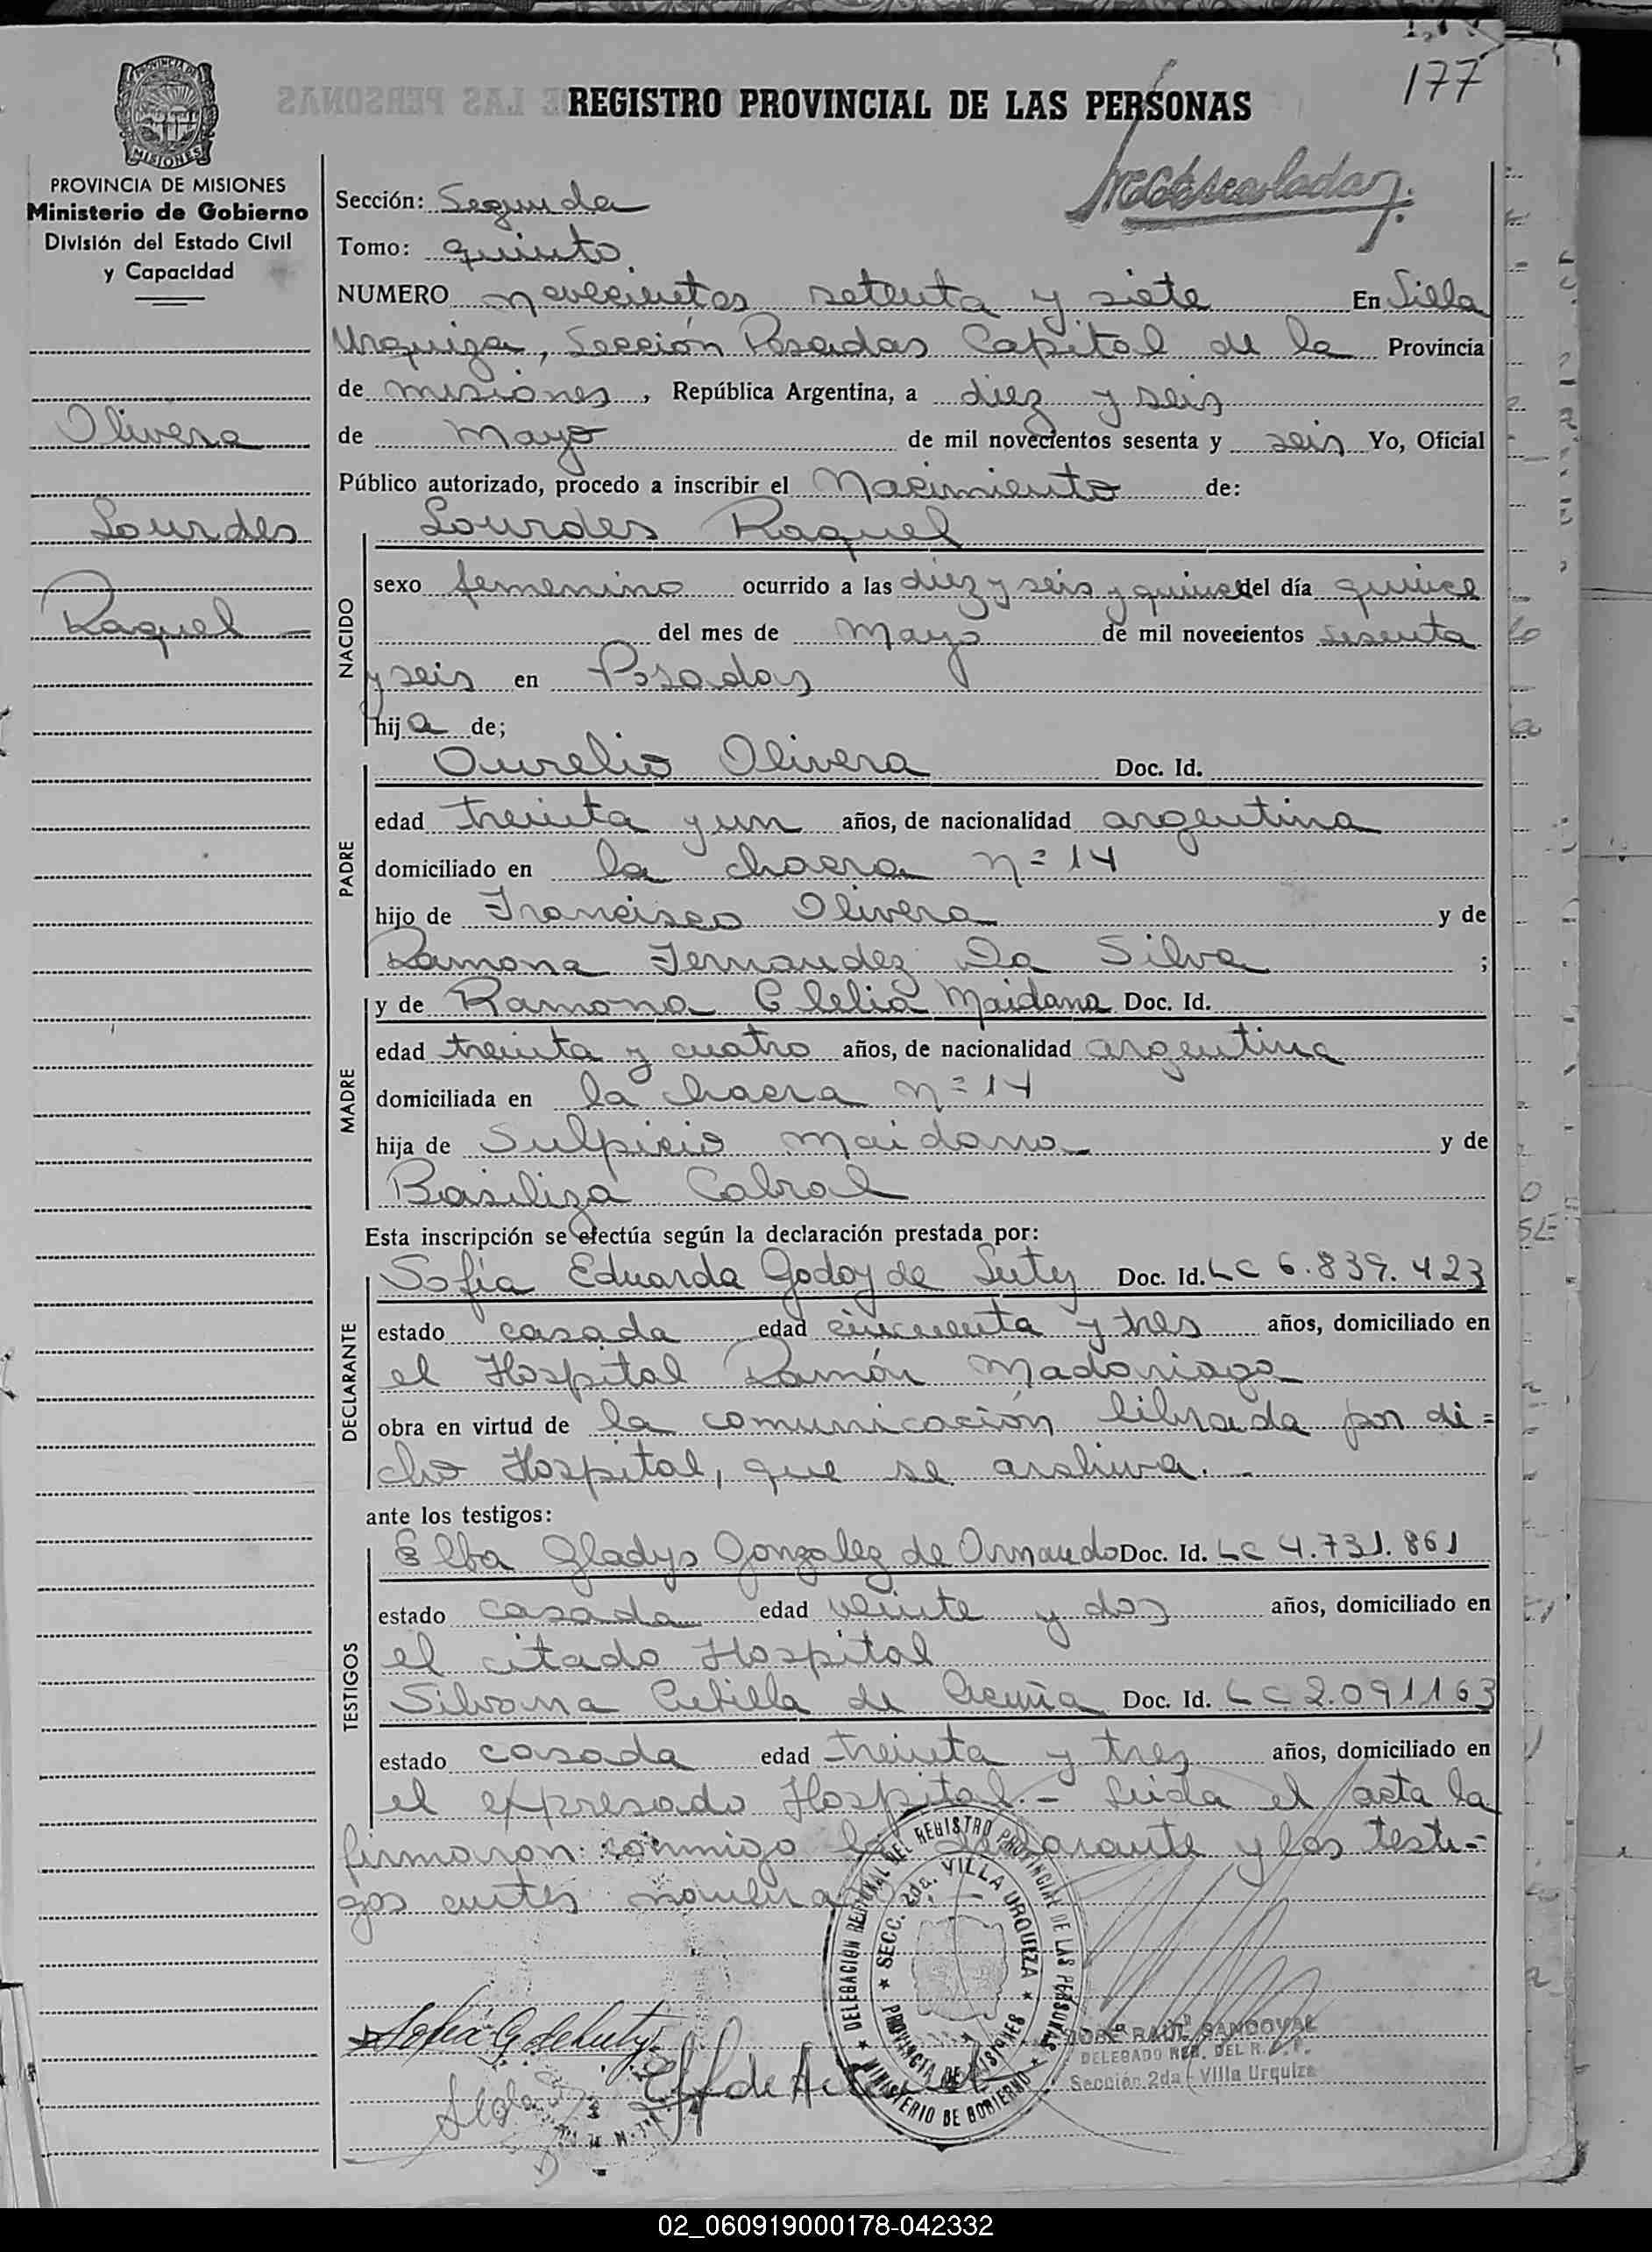 177
REGISTRO PROVINCIAL DE LAS PERSONAS
PROVINCIA DE MISIONES
Ministerio de Gobierno
División del Estado Civil
y Capacidad
Olivera
Lourdes
Raquel —
Sección: Segunda
Tomo: quinto
NUMERO novecientos setenta y siete En Villa
Urquiza, Sección Posadas Capital de la Provincia
de misiones, República Argentina, a diez y seis
de mayo de mil novecientos sesenta y seis Yo, Oficial
Público autorizado, procedo a inscribir el Nacimiento de:
Lourdes Raquel
NACIDO
sexo femenino ocurrido a las diez y seis y quince del día quince
del mes de mayo de mil novecientos sesenta
y seis en Posadas
hija de;
PADRE
Aurelio Olivera Doc. Id.
edad treinta y un años, de nacionalidad argentina
domiciliado en la chacra nº 14
hijo de Francisco Olivera y de
Ramona Fernandez Da Silva ;
MADRE
y de Ramona Clelia Maidana Doc. Id.
edad treinta y cuatro años, de nacionalidad argentina
domiciliada en la chacra nº 14
hija de Sulpicio Maidana y de
Basiliza Cabral
Esta inscripción se efectúa según la declaración prestada por:
DECLARANTE
Sofía Eduarda Godoy de Doc. Id. LC 6.839.423
estado casada edad cincuenta y tres años, domiciliado en
el Hospital Ramón Madariaga
obra en virtud de la comunicación librada por di=
cho Hospital, que se archiva.-
ante los testigos:
TESTIGOS
Elba Gladys Gonzalez de Doc. Id. LC 4.731.861
estado casada edad veinte y dos años, domiciliado en
el citado Hospital
Silvana de Acuña Doc. Id. LC 2.091163
estado casada edad treinta y tres años, domiciliado en
el expresado Hospital.- Leida el acta la
firmaron conmigo la declarante y los testi-
gos antes
DELEGACION REGIONAL DEL REGISTRO PROVINCIAL DE LAS PERSONAS
SECC. 2da. VILLA URQUIZA
PROVINCIA DE MISIONES
MINISTERIO DE GOBIERNO
JOSE RAUL SANDOVAL
DELEGADO REG. DEL R.P.P.
Sección 2da - Villa Urquiza
02_060919000178-042332